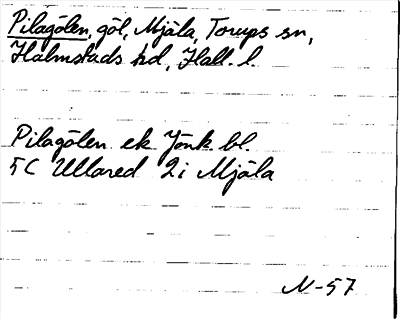 Pilagölen, göl, Mjäla, Torups sn,
Halmstads hd, Hall. l.
Pilagölen ek Jönk bl.
5C Ullared 2i Mjäla
N-57